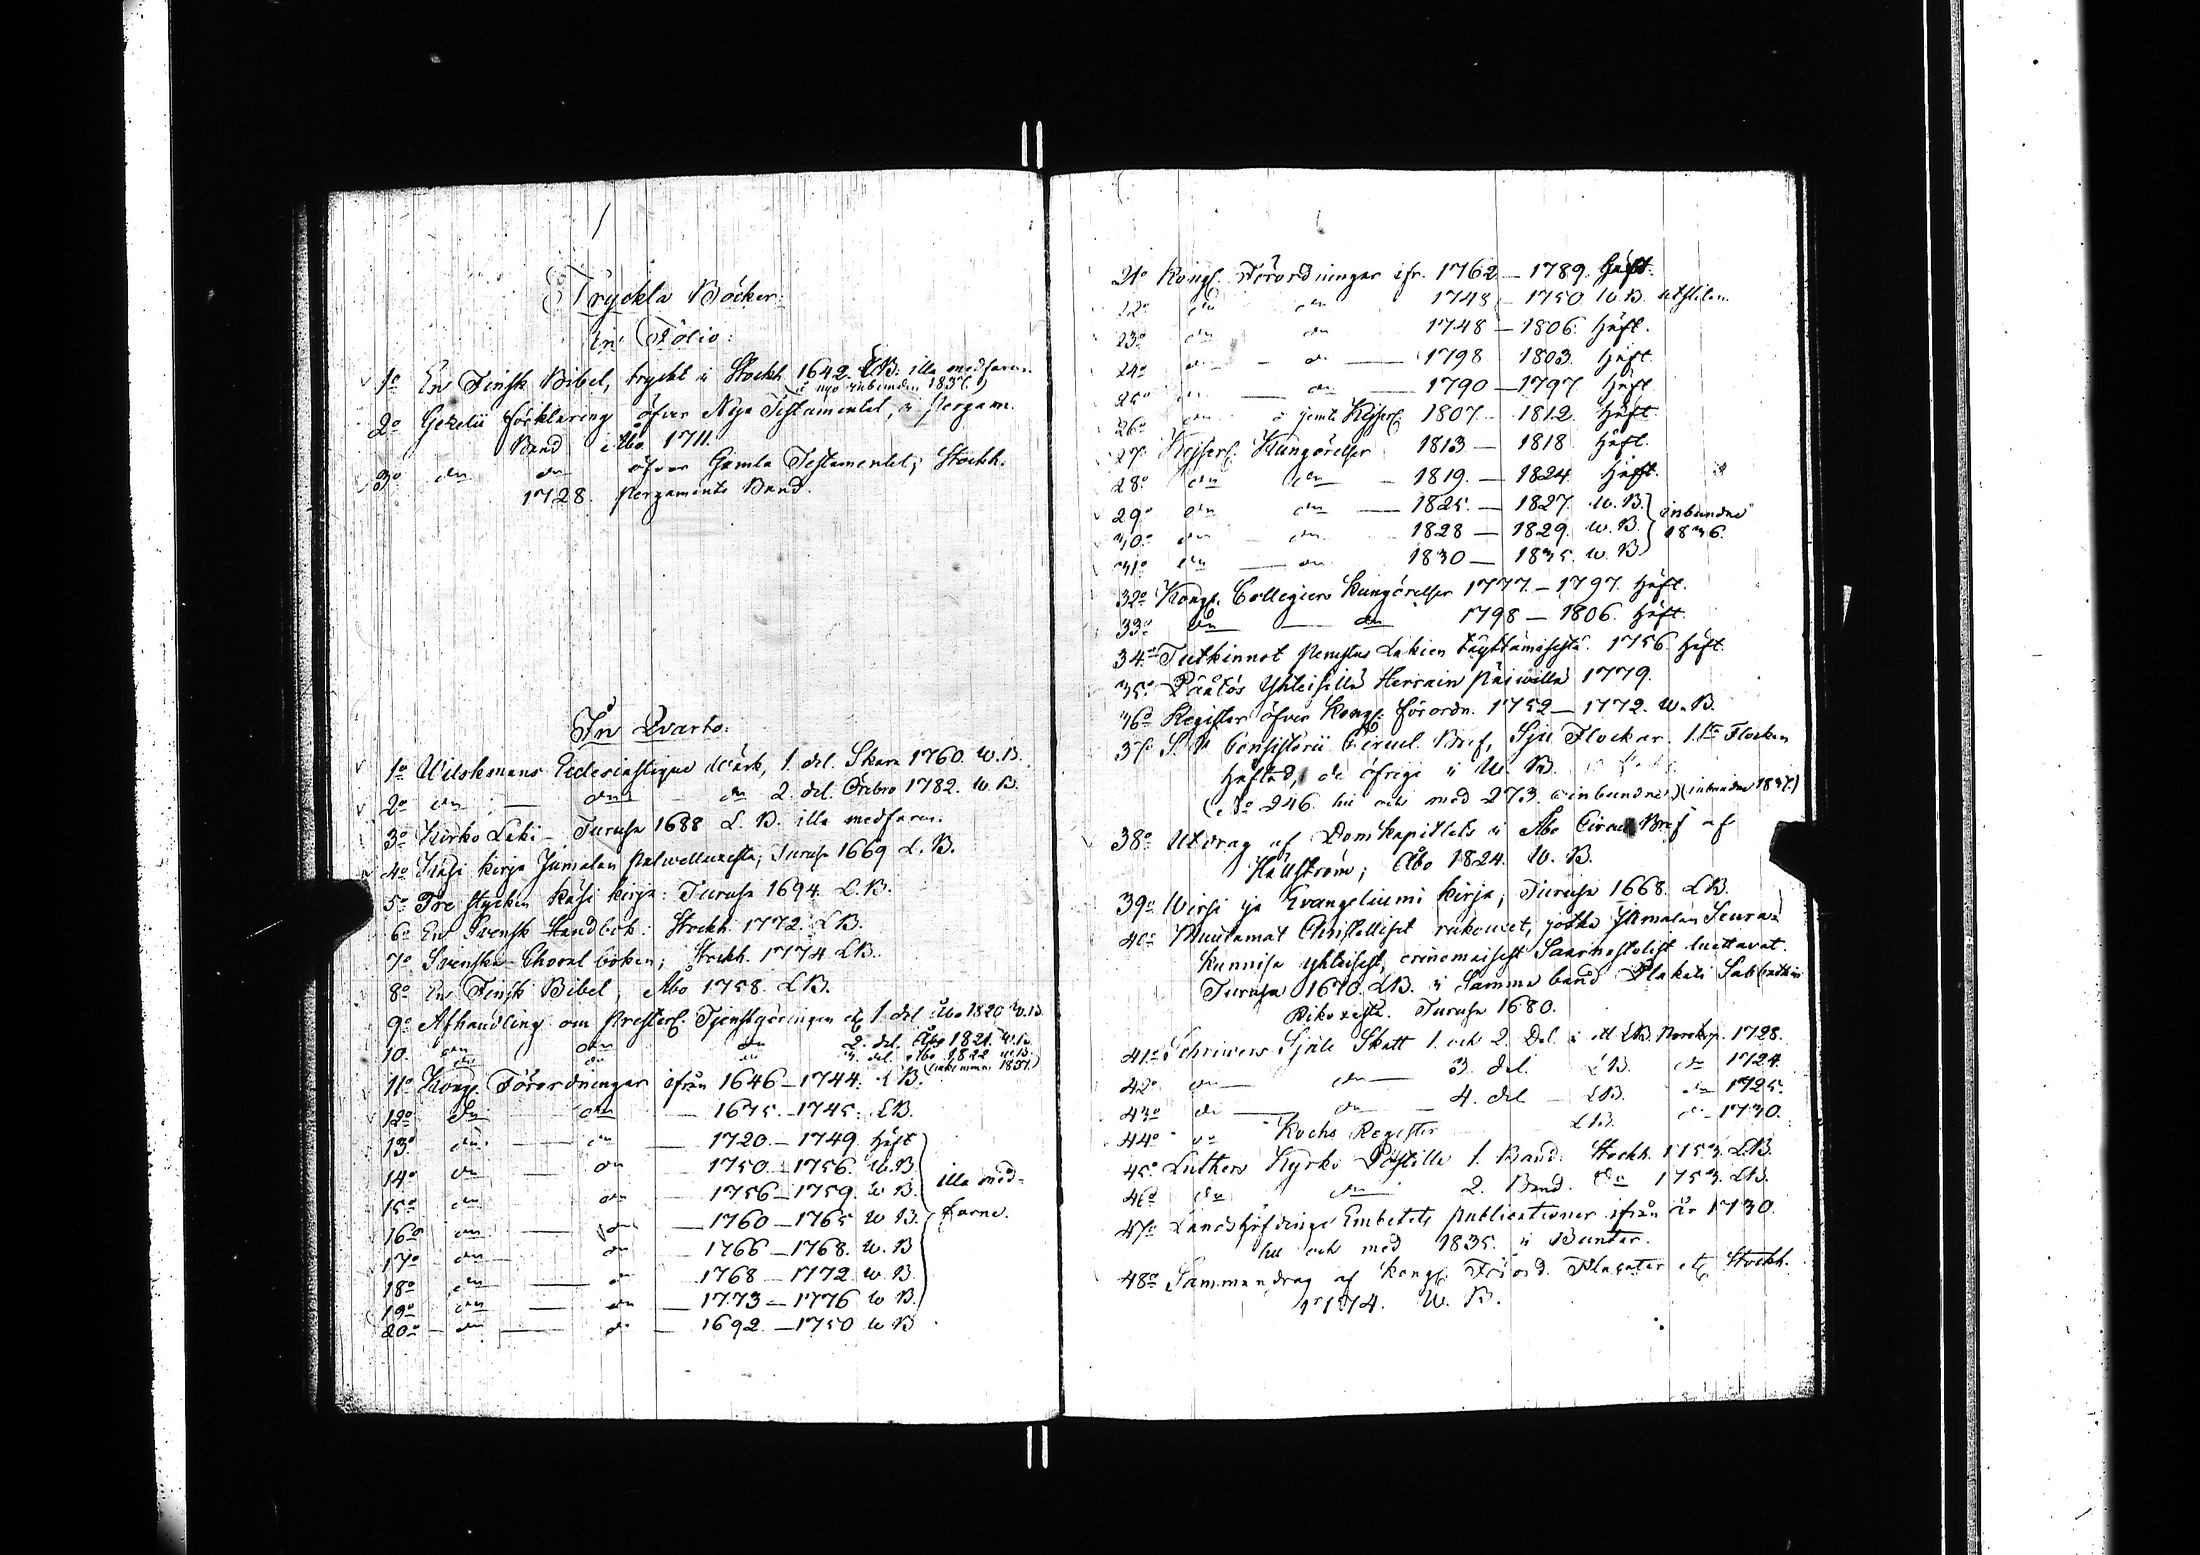 Tryckta Böcker.
In Folio:
1o En Finsk Bibel, tryckt i Stockh. 1642. LB. illa medfaren.
(å nyo inbunden 1837.)
2o Gezelii förklaring öfver Nya Testamentet, i Pergam.
Band Åbo 1711.
3o dn dn öfver Gamla Testamentet, Stockh.
1728. Pergaments Band.
In Qvarto.
1o Wilskmans Ecclesiastique Wärk, 1. del. Skara 1760. W.B.
2o dn — dn dn 2. del. Örebro 1782. W.B.
3o Kirko Laki – Turusa 1688 L.B. illa medfaren.
4o Käsi kirja Jumalan palwelluxesta, Turusa 1669 L.B.
5o Tre stycken Käsi kirja: Turusa 1694. L.B.
6o En Svensk Handbok: Stockh. 1772. LB.
7o Svenska Choral boken; Stockh. 1774 LB.
8o En Finsk Bibel, Åbo 1758. LB.
9o Afhandling om Presterl. Tjenstgöringen etc 1. del Åbo 1820 W.B.
10. dn dn dn 2. del. Åbo 1821. W.B.
dn dn dn 3. del. Åbo 1822 W.B.
11o Kongl. Förordningar ifrån 1646–1744. LB.
12o dn dn — 1675–1745. LB.
13o dn — dn — 1720–1749 Häft
14o dn — dn 1750–1756. W.B.
15o dn dn — 1756–1759. W B. illa med-
16o dn — dn — 1760–1765 W B. farne.
17o dn dn — 1766–1768. W.B
18o dn — dn 1768–1772 W.B.
19o dn — dn — 1773–1776 W B.
20o – dn — dn — 1692–1750 W B
21o Kongl. Förordningar ifr. 1762–1789. Häft.
22o dn dn 1748–1750 W.B.
23o dn dn 1748–1806. Häft.
24o dn – dn — 1798 1803. Häft
25o dn — dn — 1790–1797 Häft
26o dn o jemte Kejserl. 1807–1812. Häft
27o Kejserl. Kungörelser 1813–1818 Häft.
28o dn dn – 1819–1824. Häft.
29o dn dn — 1825.–1827. W.B. inbundne
30o dn dn 1828–1829. W.B. 1836.
31o dn — dn 1830–1835. W.B.
32o Kongl. Collegiers Kungörelser 1777–1797. Häft.
33o dn — dn 1798–1806. Häft.
34o Tutkinnot Perustus Lakien täyttämisestä. 1756. Häft.
35o Päätös Yhteisillä Herrain Päiwillä 1779.
36o Register öfver Kongl. förordn. 1752–1772. W.B.
37o S. V Consistorii Circul. Bref, Sju Flockar. 1.sta Flocken
Häftad, de öfriga i W. B.
(No 246. till och med 273. oinbundne) (inbundne 1837.)
38o Utdrag af Domkapitlets i Åbo Circul Bref af
Hällström; Åbo 1824. W.B.
39o Wirsi ja Evangeliumi kirja; Turusa 1668. LB.
40o Muutamat Christelliset rukouxet, jotka Jumalan Seura-
kunnisa yhteisest, erinomaisest Saarnastolist luettavat.
Turusa 1670. LB. i samma band Plakati Sabbathin
Rikoxesta. Turusa 1680.
41o Schriwers Själe Skatt 1. och 2. Del. i ett LB. Norrköp. 1728.
42o dn — dn — 3. del. LB. dn 1724.
43o dn — dn – 4. del – LB. dn 1725.
44o dn Kochs Register LB. dn 1730.
45o Luthers Kyrko Postilla 1. Band. Stockh. 1753. LB.
46o dn dn 2. Band. dn 1753. LB.
47o Landshöfdinge Embetets publicationer ifrån år 1730.
till och med 1835. i Buntar.
48o Sammandrag af Kongl. Förord. Placater etc Stockh.
W. B.